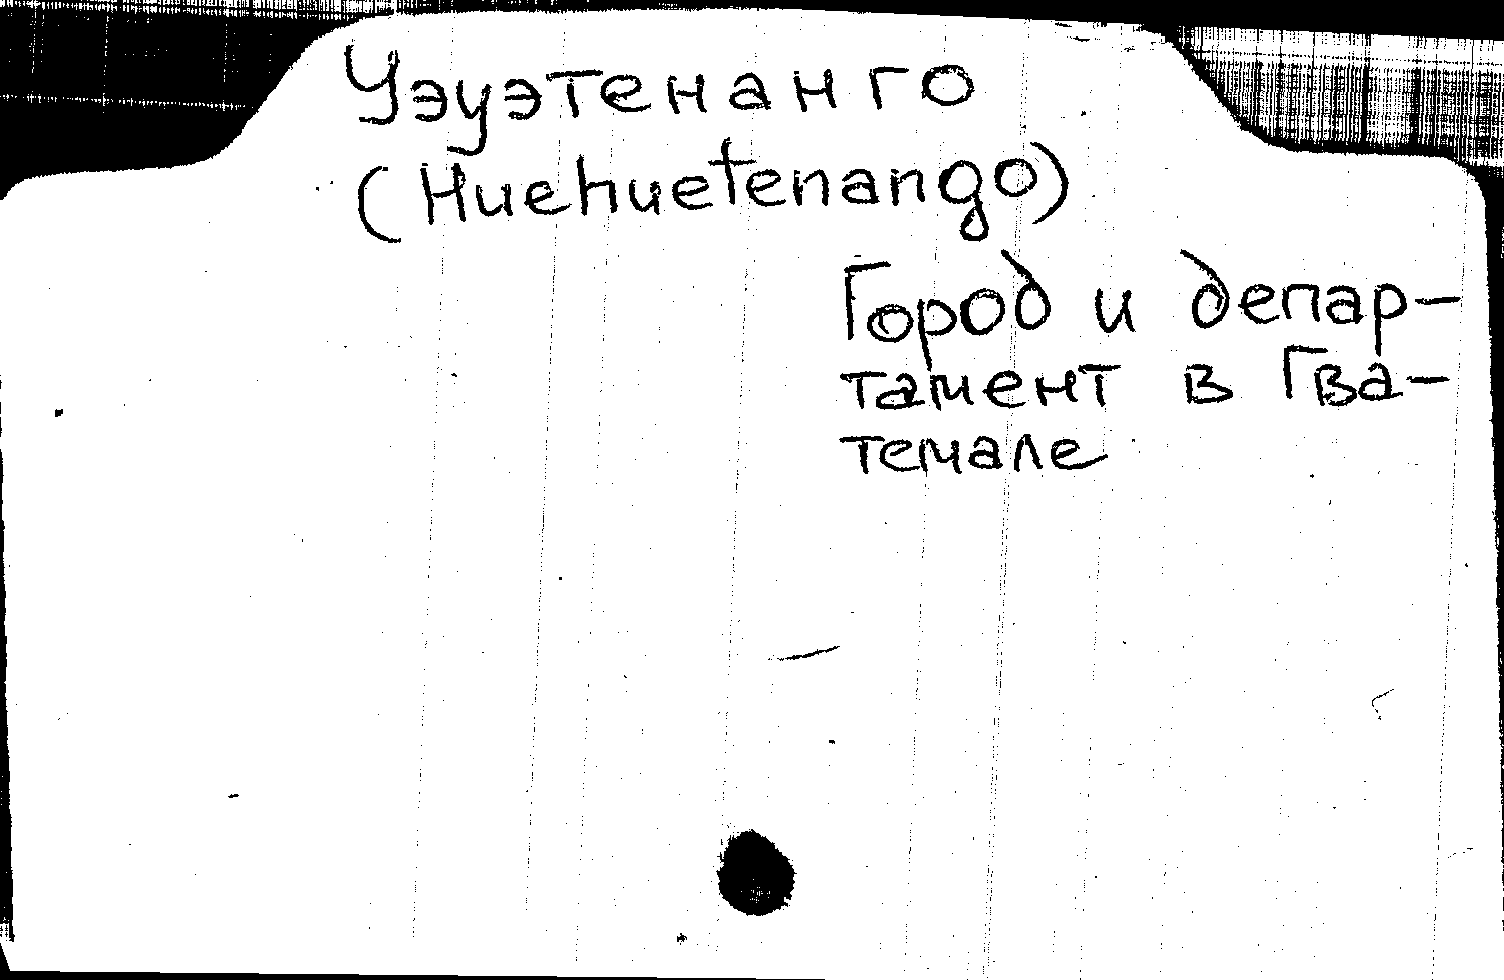 Уэуэтенанго
(Huehuetenango)
Город и депар-
тамент в Гва-
темале